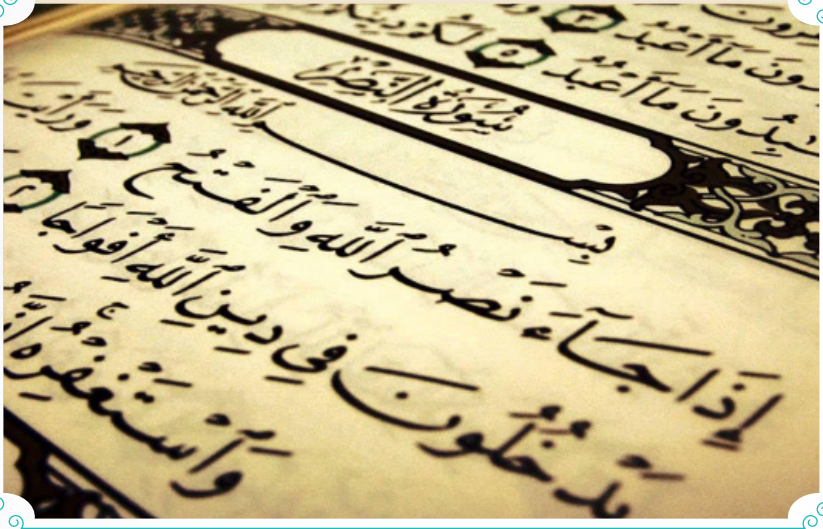 مَآ أَعْبُدُ ٣
ـبِدُونَ مَآ أَعْبُدُ ٥ لَكُمْ
سُورَةُ النَّصْرِ
بِسْمِ ٱللَّهِ ٱلرَّحْمَٰنِ ٱلرَّحِيمِ
إِذَا جَآءَ نَصْرُ ٱللَّهِ وَٱلْفَتْحُ ١ وَرَأَيْتَ
يَدْخُلُونَ فِي دِينِ ٱللَّهِ أَفْوَاجًا ٢
وَٱسْتَغْفِرْهُ إِنَّهُ